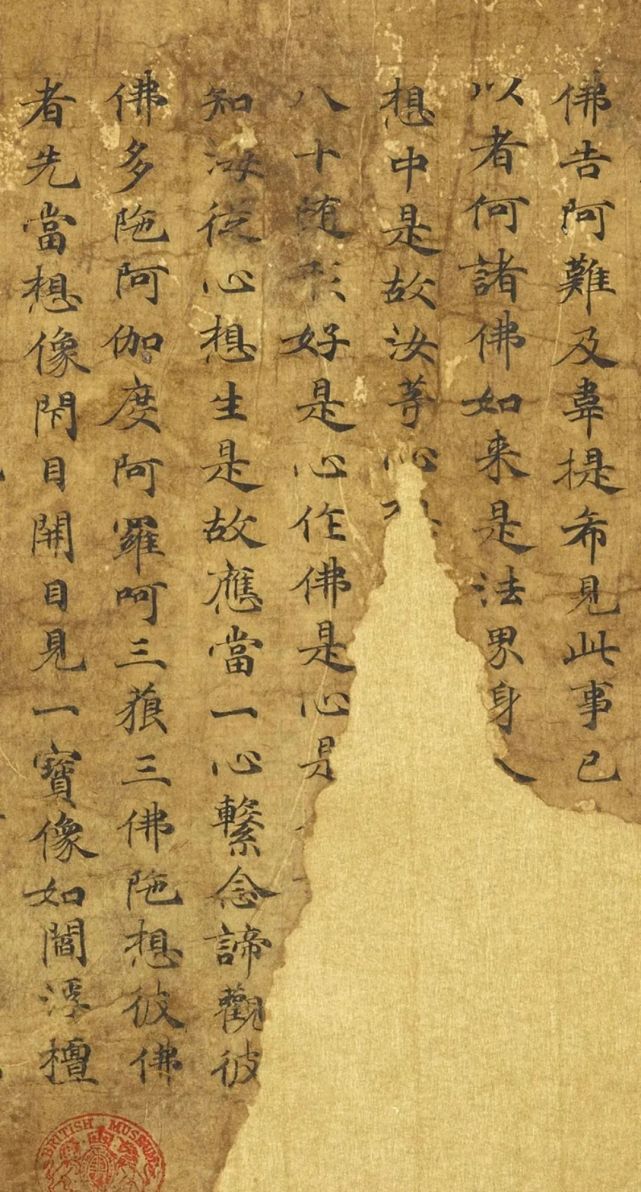 佛告阿難及韋提希見此事已
以者何諸佛如来是法界身
想中是故汝等心
八十随形好是心作佛是心是
知海従心想生是故應當一心繫念諦觀彼
佛多陁阿伽度阿羅呵三藐三佛陁想彼佛
者先當想像閇目開目見一寶像如閻浮檀
BRITISH MUSEUM